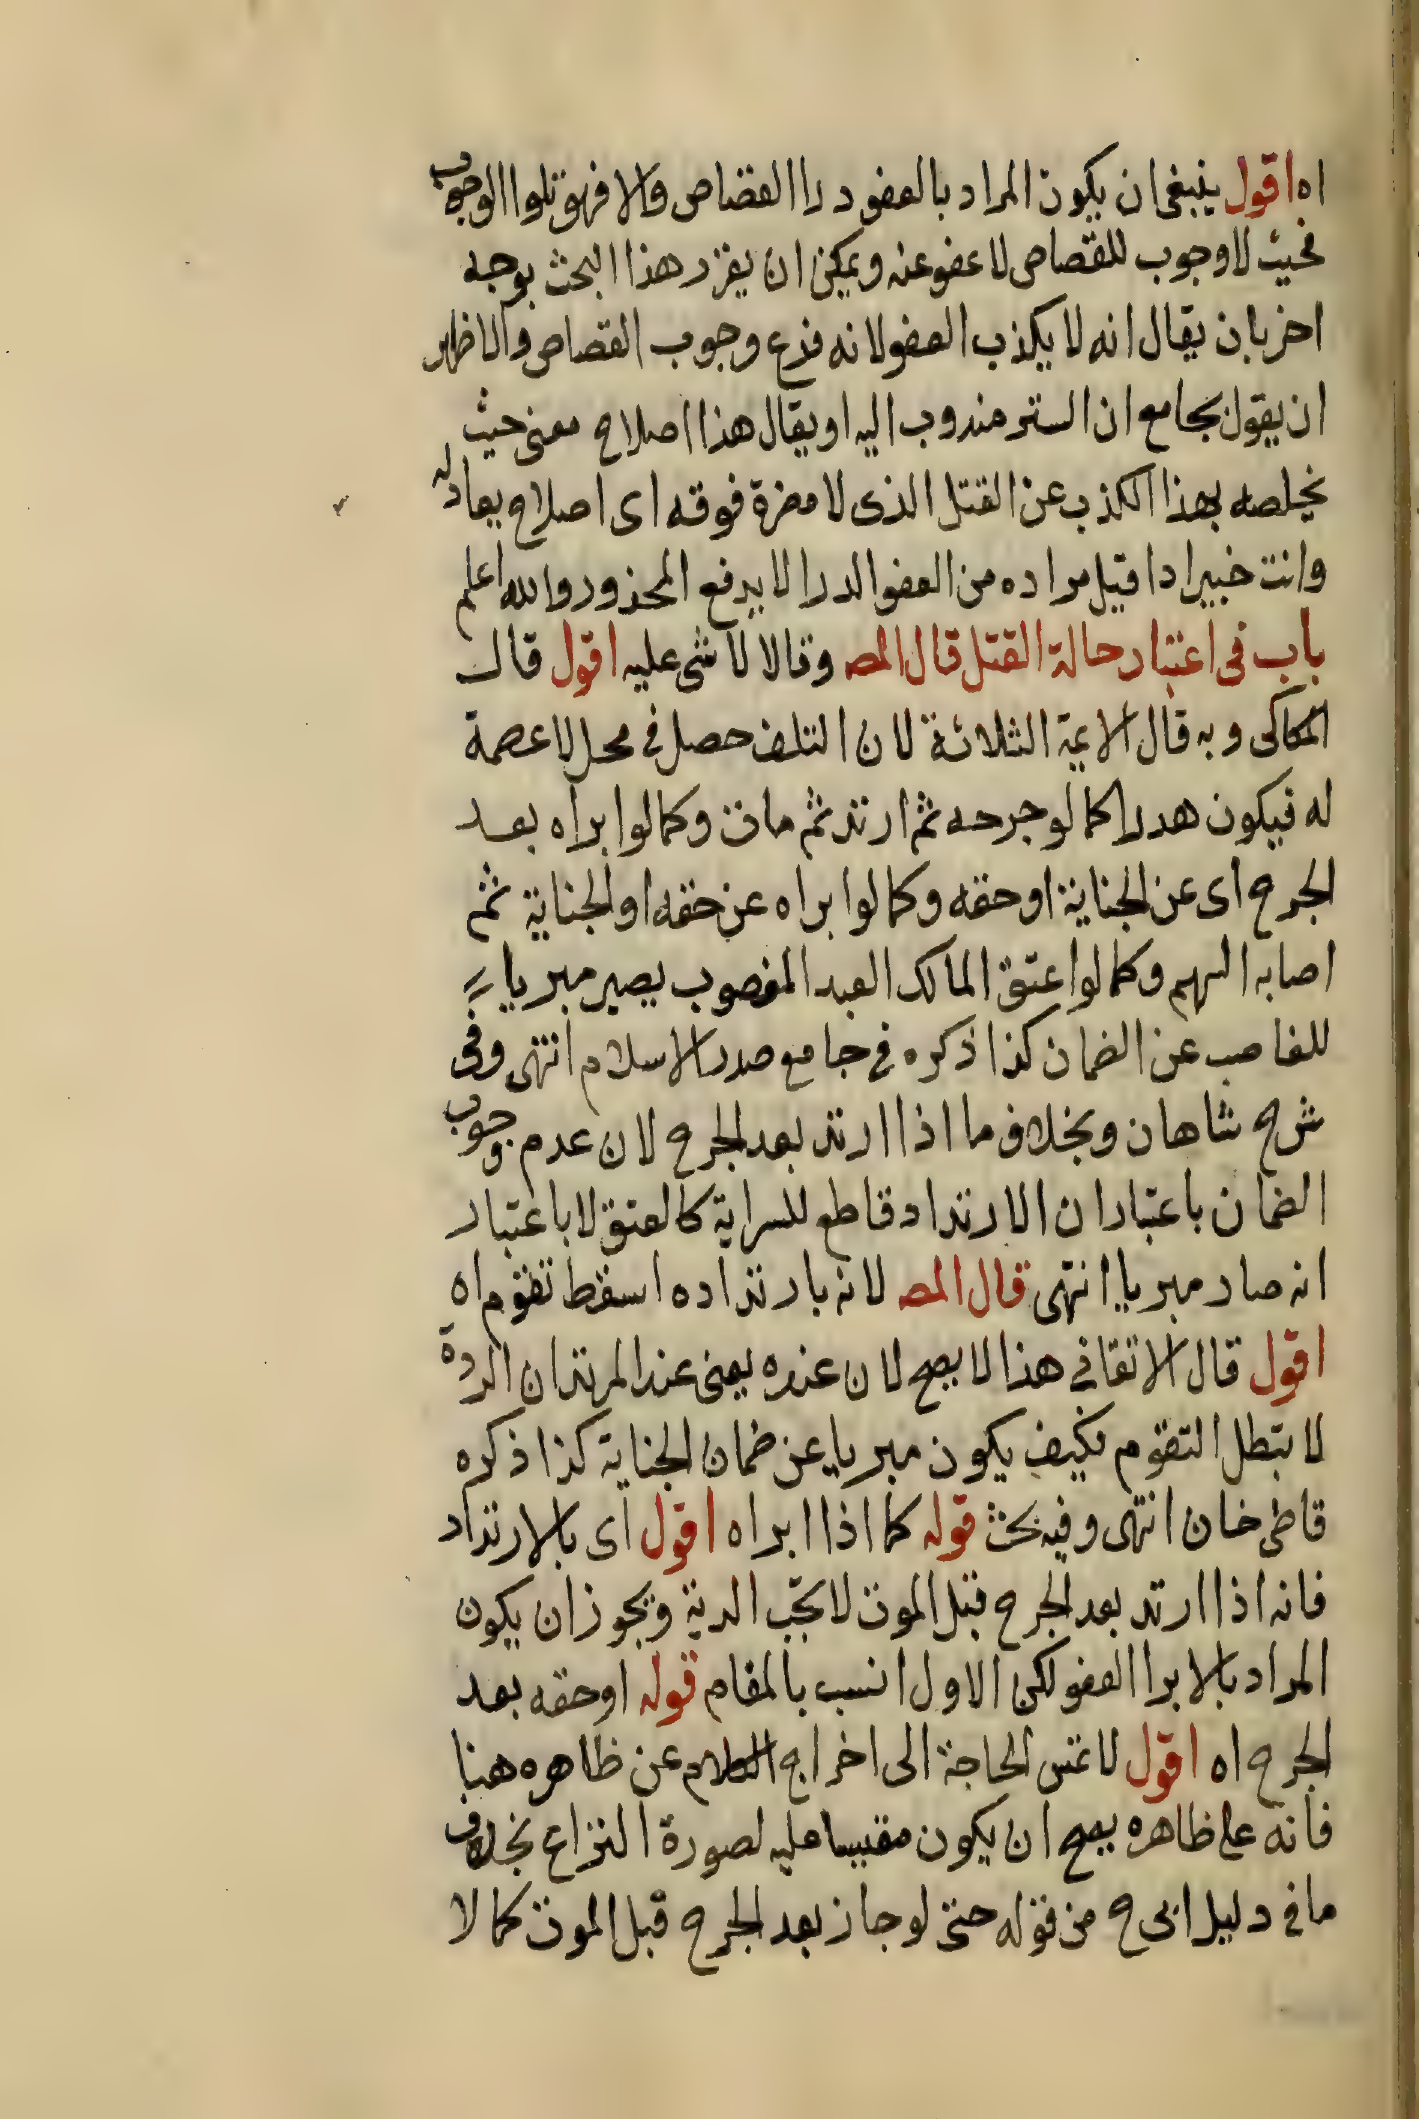 اه اقول ينبغي ان يكون المراد بالعفو درا القصاص والا فهو تلوا الوجوب
فحيث لا وجوب للقصاص لا عفو عنه ويمكن ان يقرر هذا البحث بوجه
اخر بان يقال انه لا يكذب العفو لانه فرع وجوب القصاص والاظهر
ان يقول بجامع ان الستر مندوب اليه او يقال هذا اصلاح معنى حيث
يخلصه بهذا الكذب عن القتل الذى لا مضرة فوقه اى اصلاح يعادله
وانت خبير اذا قيل مراده من العفو الدرا لا يدفع المحذور والله اعلم
باب فى اعتبار حالة القتل قال المص وقالا لا شى عليه اقول قال
الكاكى وبه قال الايمة الثلاثة لان التلف حصل فى محل لا عصمة
له فيكون هدرا كما لو جرحه ثم ارتد ثم مات وكما لو ابراه بعد
الجرح اى عن الجناية او حقه وكما لو ابراه عن حقه او الجناية ثم
اصابه السهم وكما لو اعتق المالك العبد المغصوب يصير مبريا
للغاصب عن الضمان كذا ذكره فى جامع صدر الاسلام انتهى وفى
شرح شاهان وبخلاف ما اذا ارتد بعد الجرح لان عدم وجوب
الضمان باعتبار ان الارتداد قاطع للسراية كالعتق لا باعتبار
انه صار مبريا انتهى قال المص لانه بارتداده اسقط تقوم اه
اقول قال الاتقانى هذا لا يصح لان عنده يعنى عند المرتد ان الردة
لا تبطل التقوم فكيف يكون مبريا عن ضمان الجناية كذا ذكره
قاضى خان انتهى وفيه بحث قوله كما اذا ابراه اقول اى بالارتداد
فانه اذا ارتد بعد الجرح قبل الموت لا تجب الدية ويجوز ان يكون
المراد بالابرا العفو لكن الاول انسب بالمقام قوله او حقه بعد
الجرح اه اقول لا تمس الحاجة الى اخراج الكلام عن ظاهره هنا
فانه على ظاهره يصح ان يكون مقيسا عليه لصورة النزاع بخلاف
ما فى دليل ابى ح من قوله حتى لو جاز بعد الجرح قبل الموت كما لا